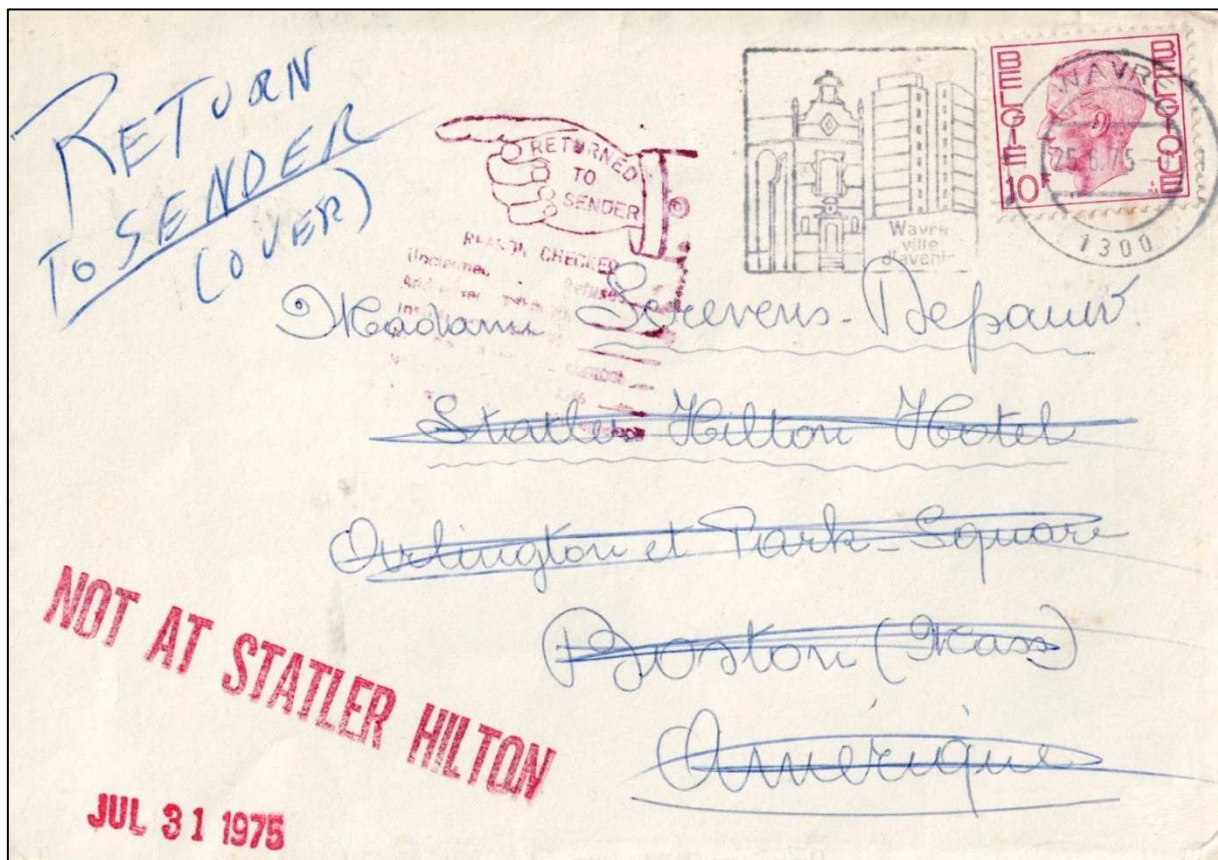 RETURN
TO SENDER
(OVER)
RETURNED
TO
SENDER
REASON CHECKED
Unclaimed Refused
Wavre
ville
d'avenir
BELGIE
BELGIQUE
10F
WAVRE
25.6.75
1300
Madame Screvens-Depauw
Statler Hilton Hotel
Arlington et Park-Square
Boston (Mass)
Amérique
NOT AT STATLER HILTON
JUL 31 1975